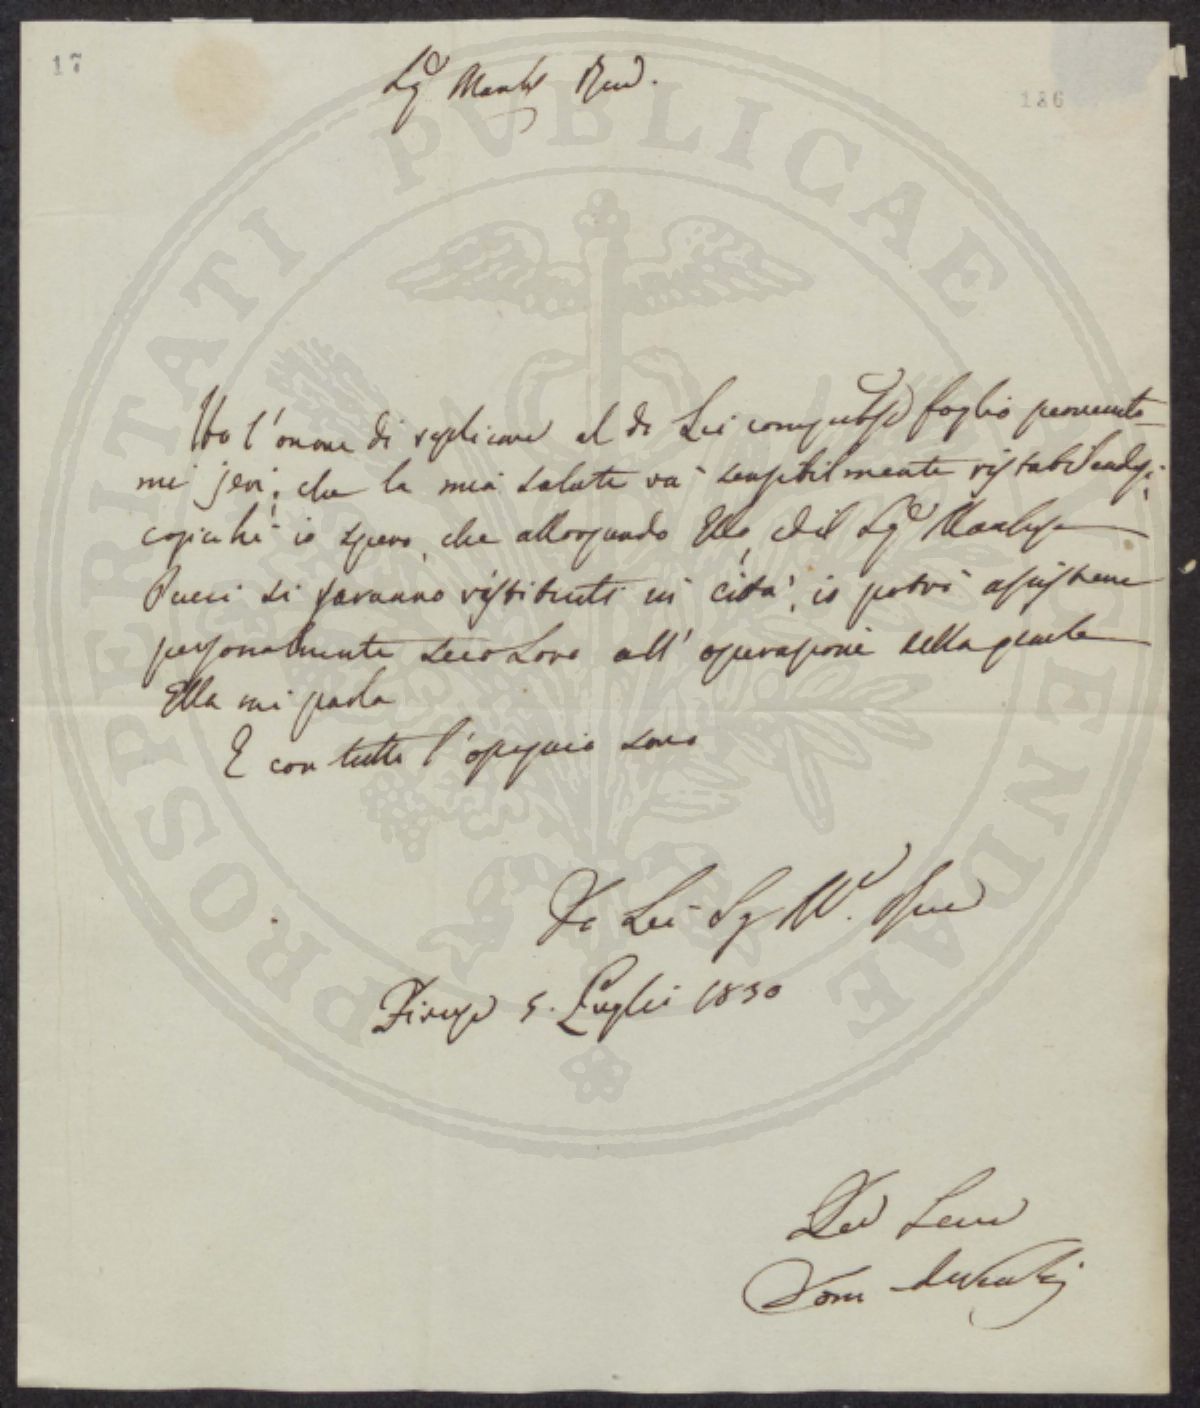 17
186
Sig.e March.
PROSPERITATI PUBLICAE AUGENDAE
Ho l'onore di replicare al di Lei foglio pervenuto-
mi jeri, che la mia salute va sensibilmente ristabilendosi,
cosicchè io spero, che allorquando Ella, ed il Sig.e Marchese
Pucci si saranno restituiti in città, io potrò assistere
personalmente seco Loro all' operazione della quale
Ella mi parla
E con tutto l'ossequio sono
Di Lei Sig.
Firenze 5. Luglio 1830
Dev. Serv.